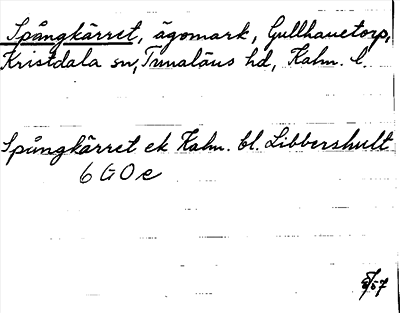 Spångkärret, ägomark, Gullhanetorp,
Kristdala sn, Tunaläns hd, Kalm. l.
Spångkärret ek Kalm. bl. Libbershult
6 G O e